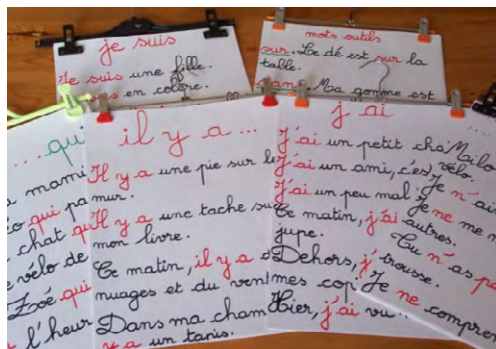 je suis
Je suis une fille.
en colère.
mots outils
sur. Le dé est sur la
table.
dans. Ma gomme est
....qui
a mami
qui pa
chat qu
vélo de
Zoé qui
l'heur
il y a ...
Il y a une pie sur le
mur.
Il y a une tache su
mon livre.
Ce matin, il y a d
nuages et du vent
Dans ma cham
y a un tapis.
j'ai
J'ai un petit cha
J'ai un ami, c'es
J'ai un peu mal.
Ce matin, j'ai
jupe.
Dehors, j'
mes cop
Hier, j'ai vu
Mailo
vélo.
Je n'ai
Je ne me m
autres.
Tu n'as pa
trousse.
Je ne compren